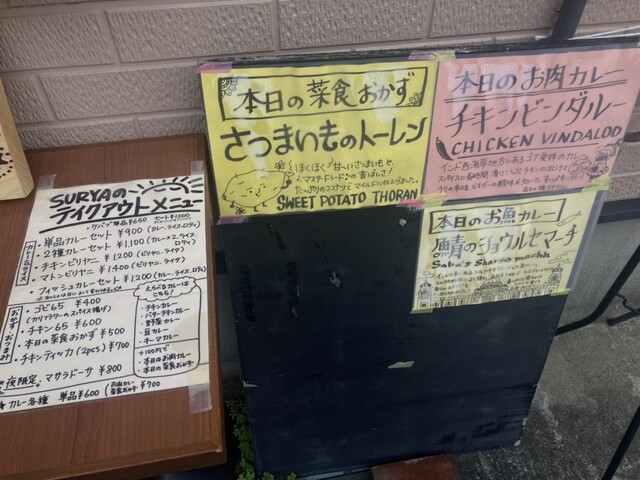 SURYAの
テイクアウトメニュー
単品カレーセット ¥900 (カレー、ライス、ロティ)
2種カレーセット ¥1,100 (カレー×2、ライス、ロティ)
チキンビリヤニ ¥1200 (ビリヤニ、ライタ)
マトンビリヤニ ¥1400 (ビリヤニ、ライタ)
フィッシュカレーセット ¥1200 (カレー、ライス、ロティ)
カレー&ライス
おかず・おつまみ
ゴビ65 ¥400
(カリフラワーのスパイス揚げ)
チキン65 ¥600
本日の菜食おかず ¥500
チキンティッカ (2pcs) ¥700
夜限定 マサラドーサ ¥800
カレー各種 単品¥600 (お肉カレー ¥700
えらべるカレーは
こちら!
・チキンカレー
・バターチキンカレー
・野菜カレー
・豆カレー
・キーマカレー
+100円で
・本日のお肉カレー
・本日の菜食おかず
本日の菜食おかず
さつまいものトーレン
ほくほく甘〜いさつまいもと
マスタードシードの香ばしさ!
たっぷりのココナツとマイルドに仕上げました。
SWEET POTATO THORAN
本日のお肉カレー
チキンビンダルー
CHICKEN VINDALOO
インド西海岸地方にあるゴア発祥のカレー
本日のお魚カレー
鯖のショウルセマーチ
Saba's Shorse machh